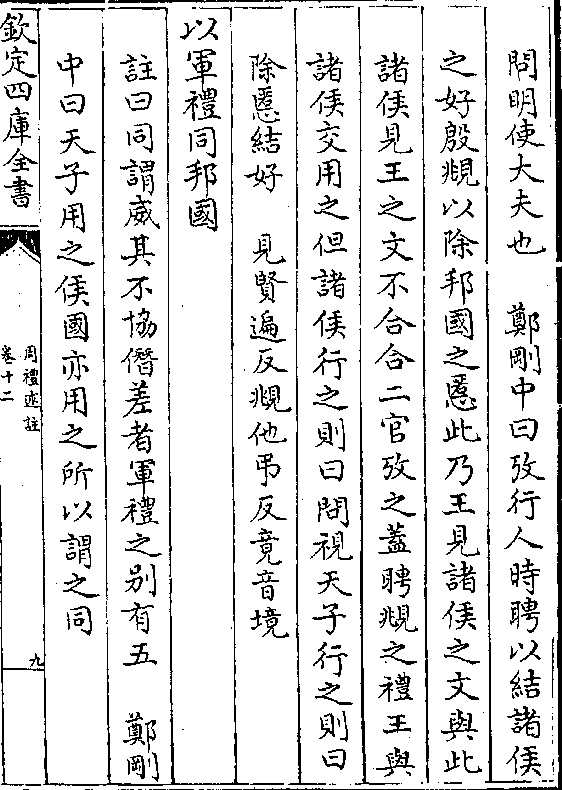 問明使大夫也　鄭剛中曰攷行人時聘以結諸侯
之好殷覜以除邦國之慝此乃王見諸侯之文與此
諸侯見王之文不合合二官攷之葢聘覜之禮王與
諸侯交用之但諸侯行之則曰問視天子行之則曰
除慝結好　見賢遍反覜他弔反竟音境
以軍禮同邦國
註曰同謂威其不協僭差者軍禮之别有五　鄭剛
中曰天子用之侯國亦用之所以謂之同
欽定四庫全書
周禮述註
卷十二
九